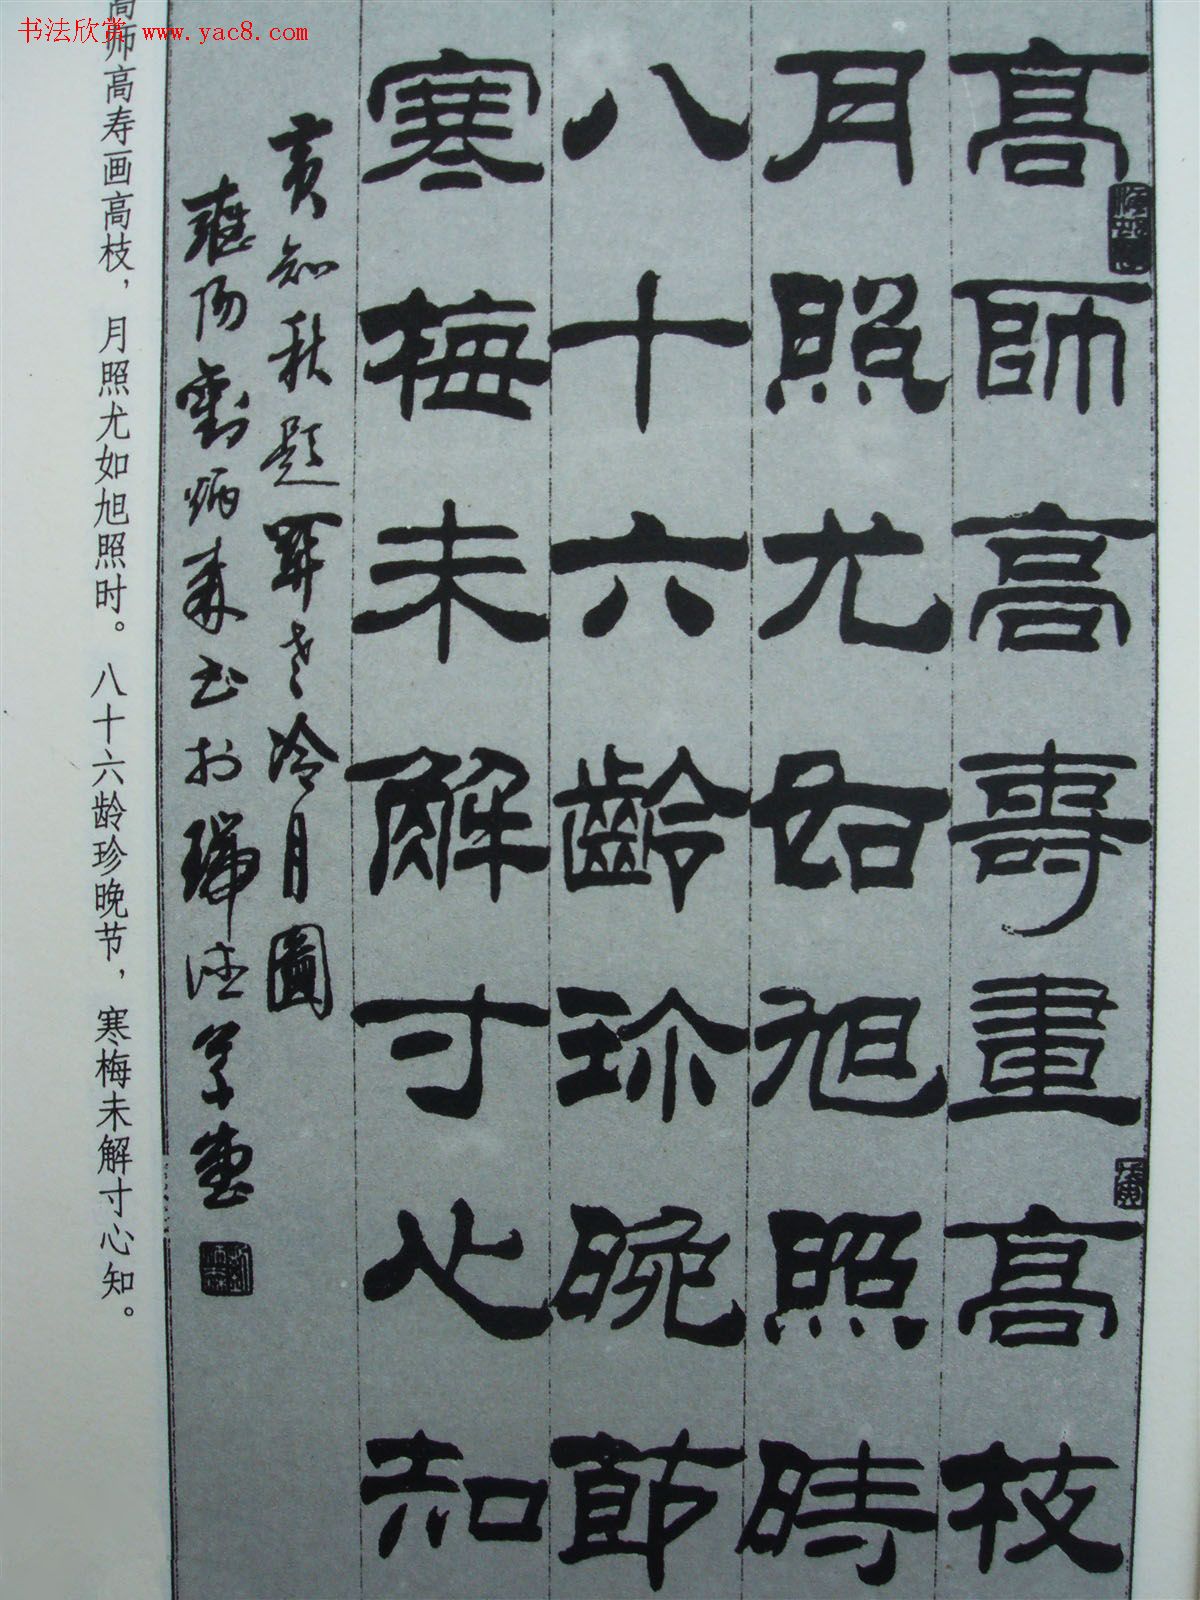 书法欣赏 www.yac8.com
高師高壽畫高枝
月照尤如旭照時
八十六齡珍晚節
寒梅未解寸心知
黄知秋题關老冷月圖
雍陽劉炳森书於瑞德草堂
高师高寿画高枝，月照尤如旭照时。八十六龄珍晚节，寒梅未解寸心知。